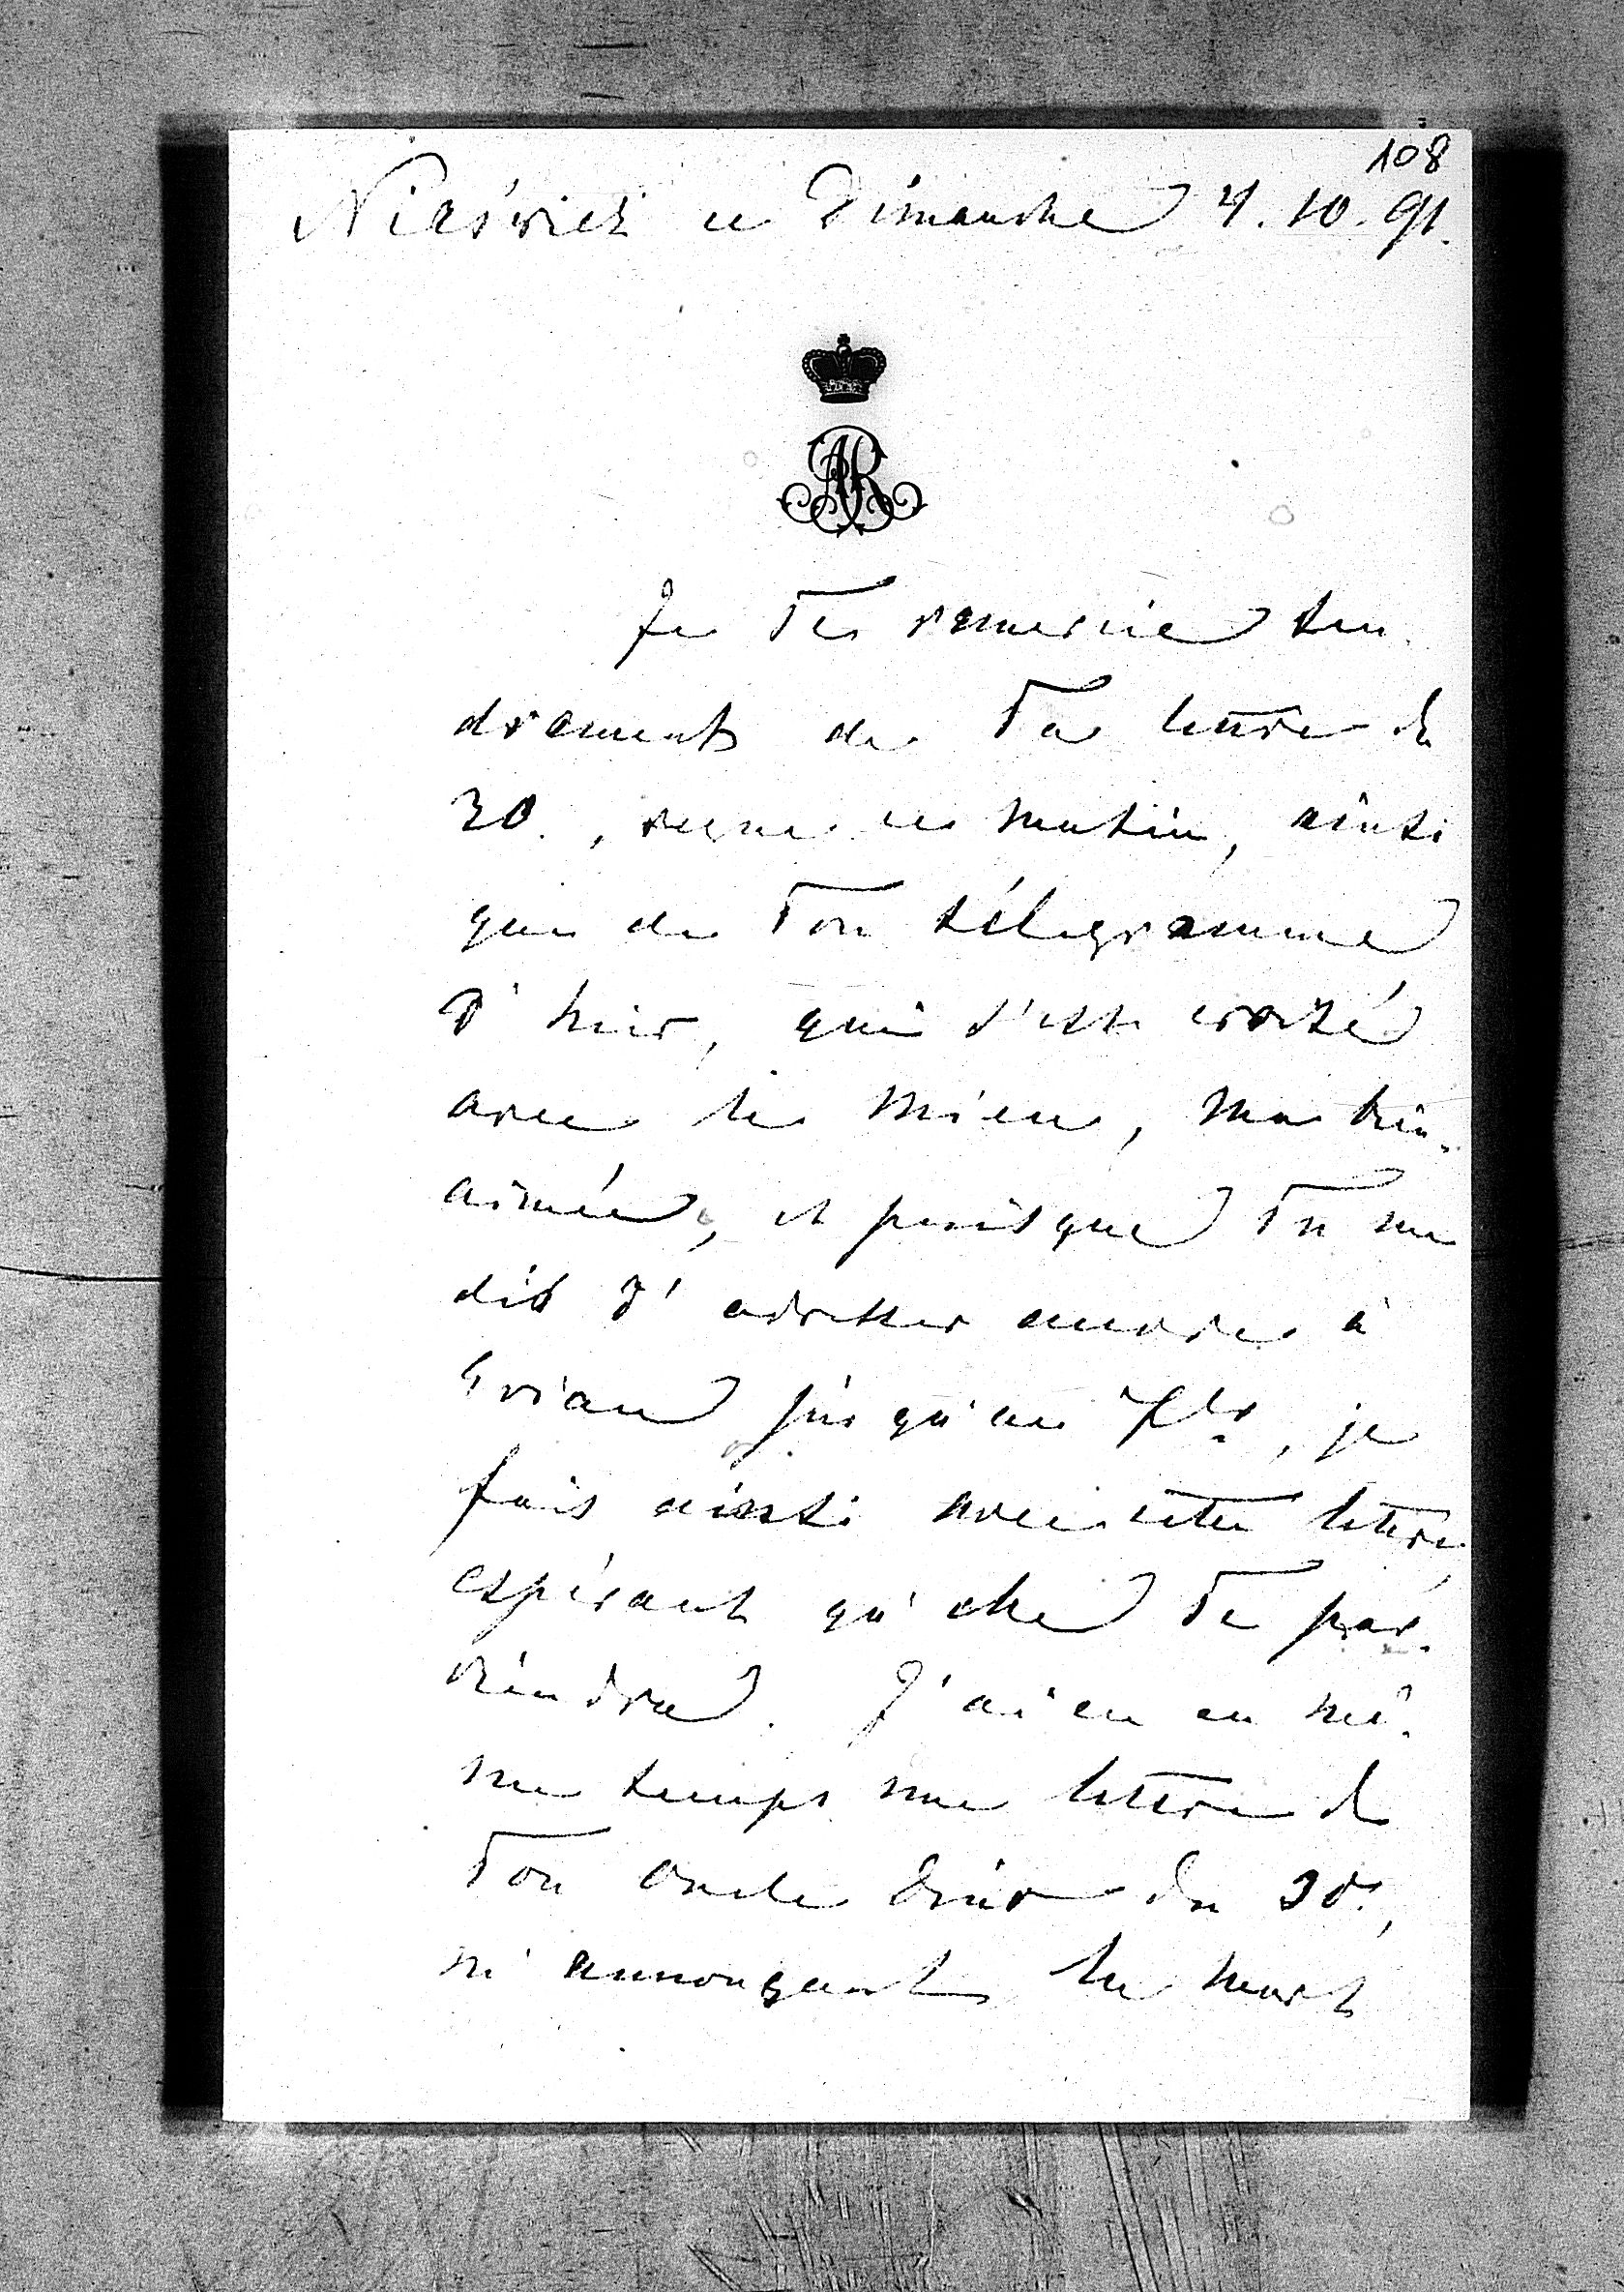 108
Nieśwież ce Dimanche 4. 10. 91.
AR
Je Te remercie ten-
drement de Ta lettre du
30., reçue ce matin, ainsi
que de Ton télégramme
d'hier, qui s'est croisé
avec le mien, ma bien-
aimée, et puisque Tu me
dis d'adresser encore à
Evian jusqu'au, je
fais ainsi avec cette lettre,
espérant qu'elle Te par-
viendra. J'ai eu en mê-
me temps une lettre de
Ton oncle du 30.,
m'annonçant la mort